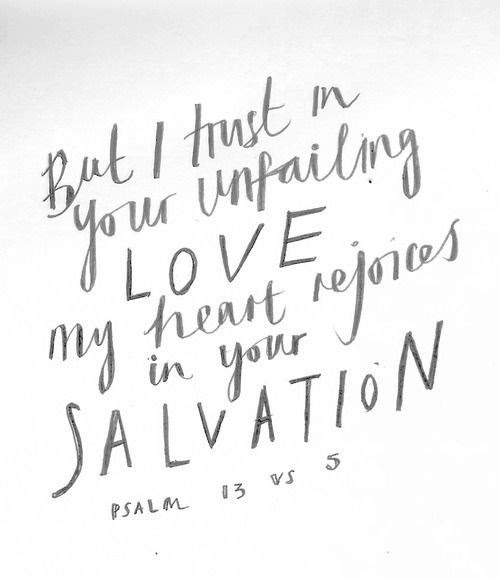 But I trust in
your unfailing
LOVE
my heart rejoices
in your
SALVATION
PSALM 13 vs 5